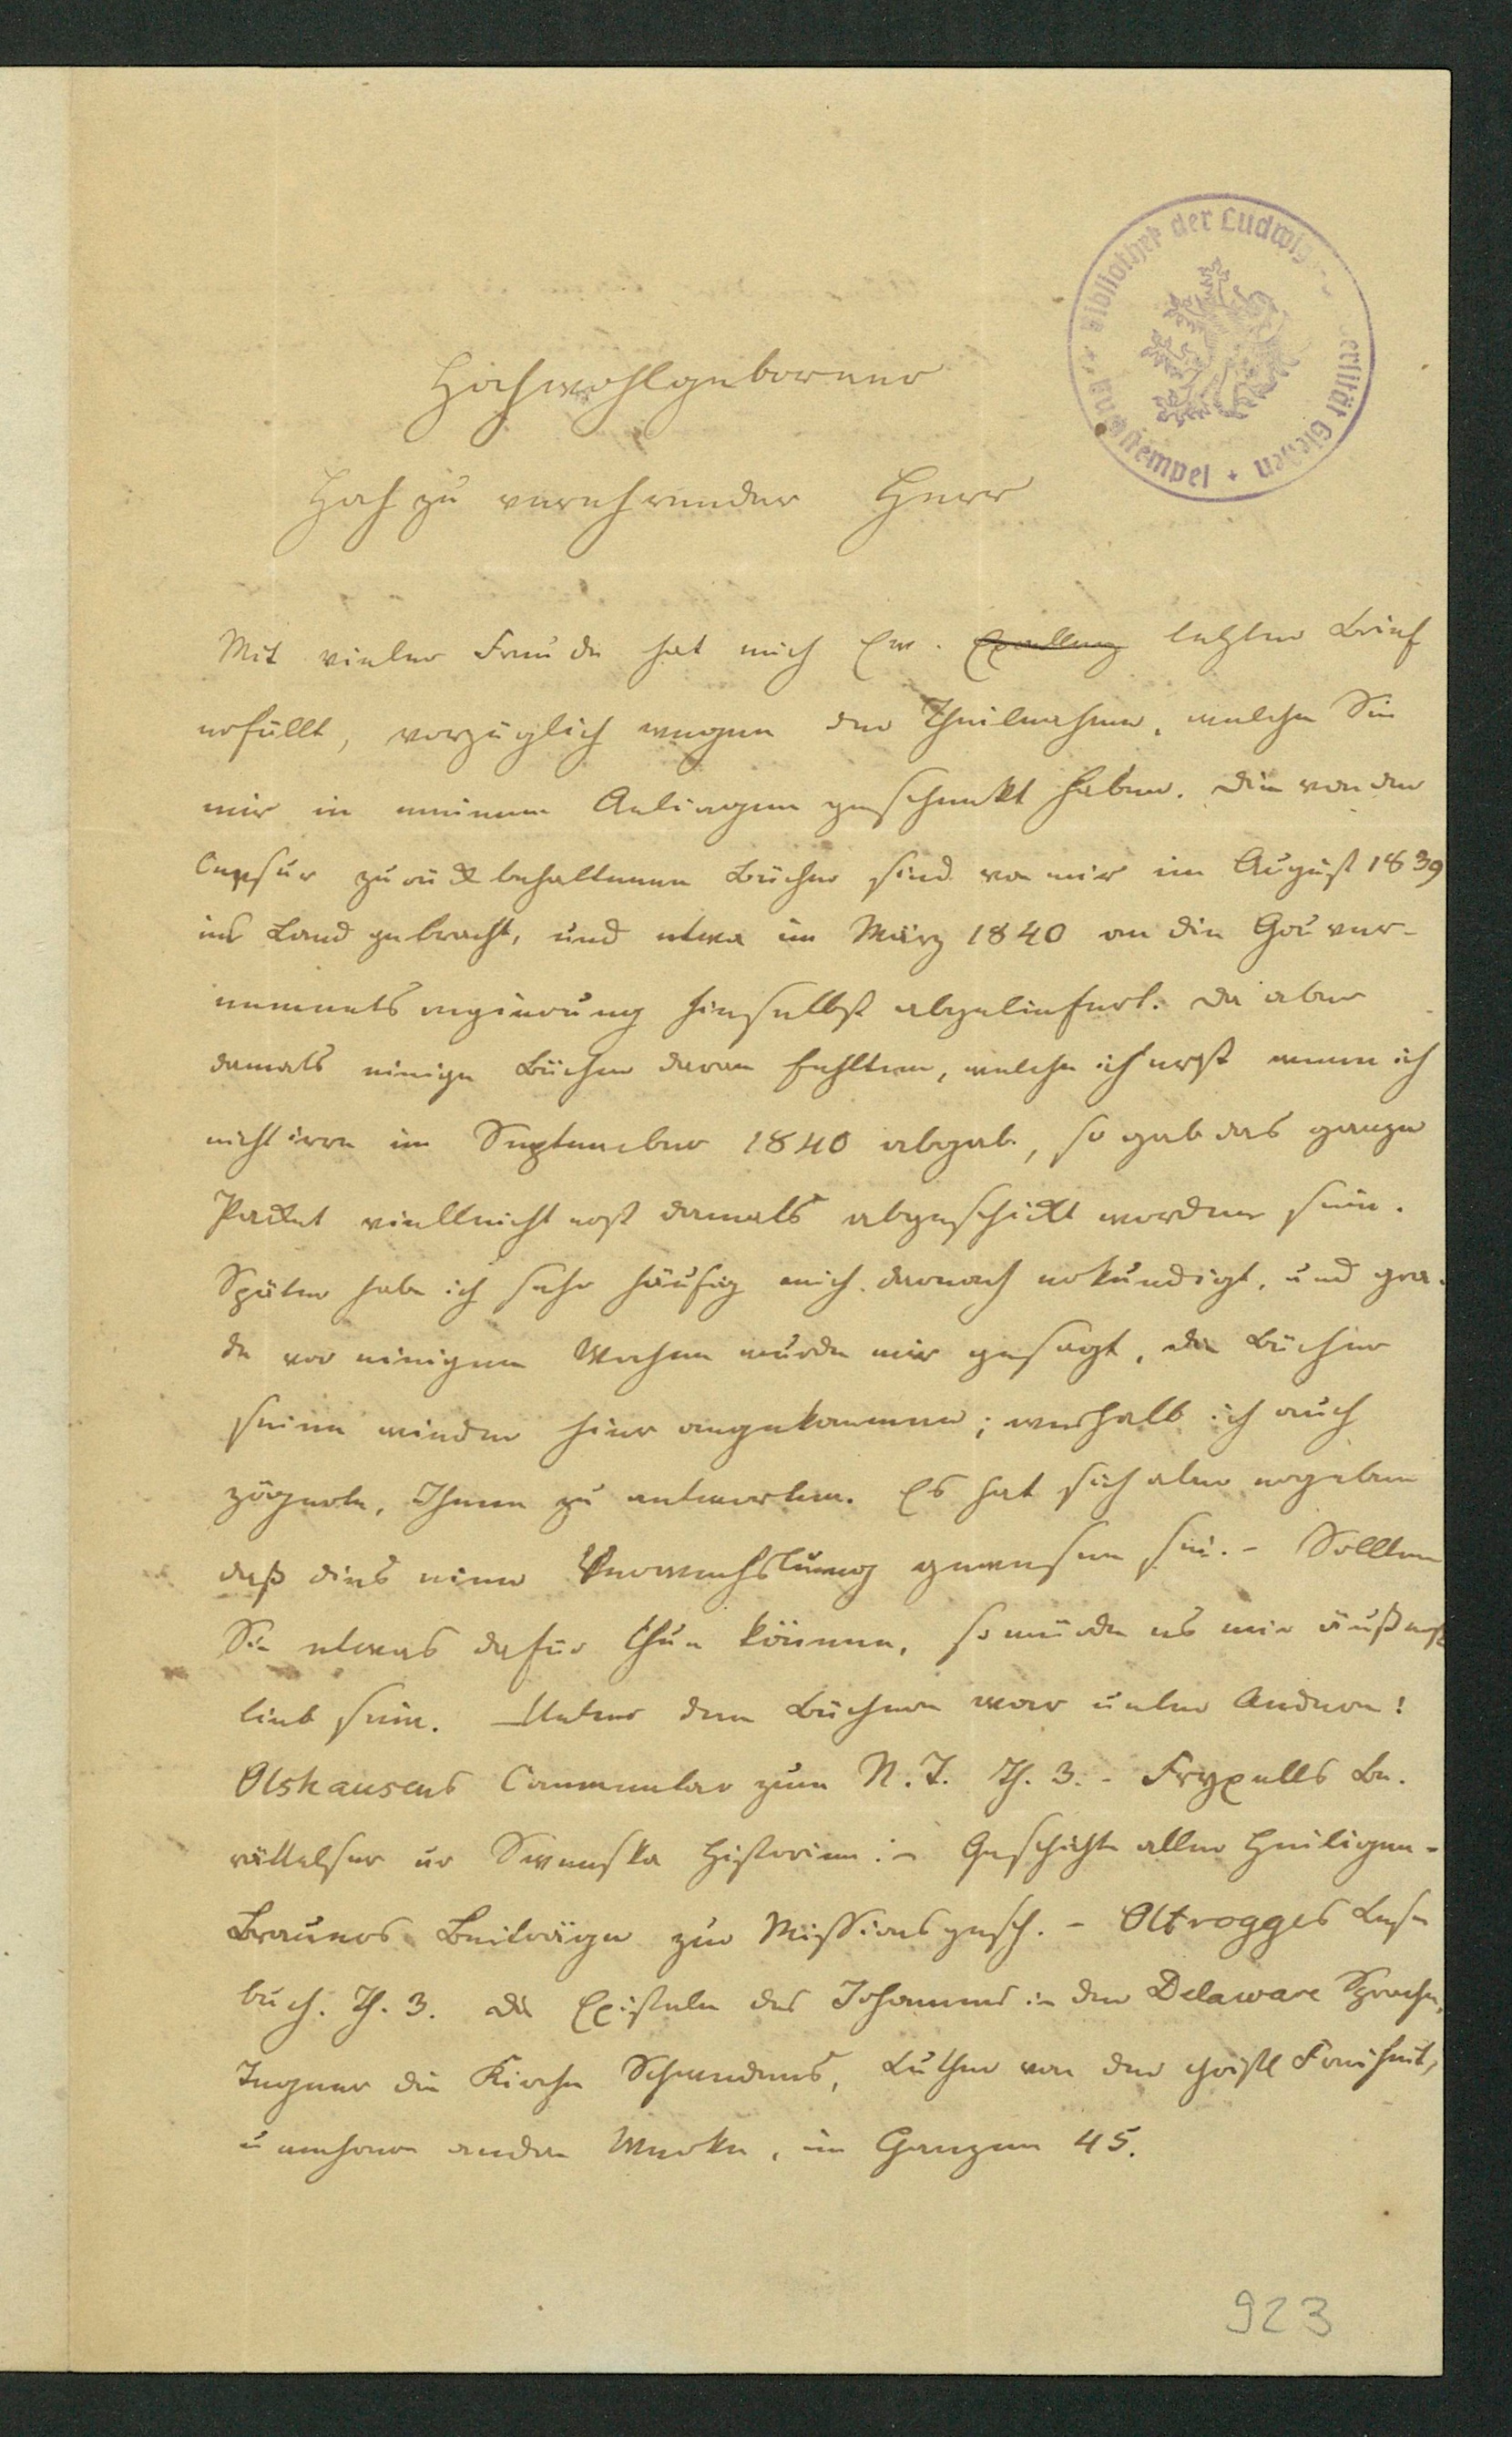 Bibliothek der Ludwigs Universität Gießen
Hochwohlgeborner
Hochzuverehrender Herr
Mit vieler Freude hat mich Ew. Excellenz letzter Brief
erfüllt, vorzüglich wegen der Theilnahme, welche Sie
mir in meinem Anliegen geschenkt haben. Die von der
Censur zurückbehaltenen Bücher sind von mir im August 1839
ins Land gebracht, und etwa im März 1840 an die Gouver-
nementsregierung hieselbst abgeliefert. Da aber
damals einige Bücher daran fehlten, welche ich erst wenn ich
nicht irre im September 1840 abgab, so gab das ganze
Packet vielleicht erst damals abgeschickt worden sein.
Später habe ich sehr häufig mich darnach erkundigt, und gra-
de vor einigen Wochen wurde mir gesagt, die Bücher
seien wieder hier angekommen; weshalb ich auch
zögerte, Ihnen zu antworten. Es hat sich aber ergeben
daß dies eine Verwechslung gewesen sei. - Sollten
Sie etwas dafür thun können, so würde es mir äußerst
lieb sein. Unter den Büchern war unter Andern:
Olshausens Commentar zum N. T. Th. 3. - Fryxells Be-
rättelser ur Swenska Historien. - Geschichte aller Heiligen -
Brauers Beiträge zur Missionsgesch. - Oltrogges Lese
buch. Th. 3. Die Episteln des Johannes in der Delaware Sprache,
Tegner die Kirche Schwedens, Luther von der christl Freiheit,
u mehrere andere Werke, im Ganzen 45.
923